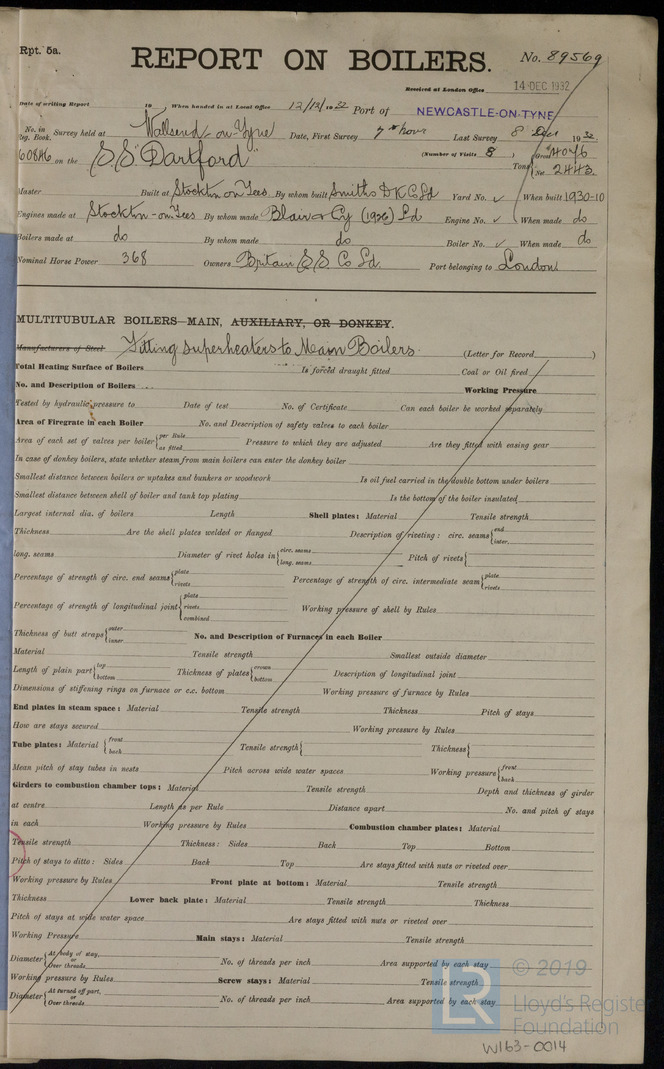 Rpt. 5a.
REPORT ON BOILERS.
No. 89569
Received at London Office 14 DEC 1932
Date of writing Report 19 When handed in at Local Office 12/12/1932 Port of NEWCASTLE-ON-TYNE
No. in Survey held at Wallsend-on-Tyne Date, First Survey 7th Nov Last Survey 8 Dec 1932
Reg. Book.
60846 on the S.S. "Dartford" (Number of Visits 8) Tons Gross 4076 Net 2443
Master Built at Stockton on Tees By whom built Smiths D K Co Ld Yard No. ✓ When built 1930-10
Engines made at Stockton-on-Tees By whom made Blair & Cy (1926) Ld Engine No. ✓ When made do
Boilers made at do By whom made do Boiler No. ✓ When made do
Nominal Horse Power 368 Owners Britain S.S. Co Ld. Port belonging to London
MULTITUBULAR BOILERS—MAIN, AUXILIARY, OR DONKEY.
Manufacturers of Steel Fitting superheaters to Main Boilers (Letter for Record )
Total Heating Surface of Boilers Is forced draught fitted Coal or Oil fired
No. and Description of Boilers Working Pressure
Tested by hydraulic pressure to Date of test No. of Certificate Can each boiler be worked separately
Area of Firegrate in each Boiler No. and Description of safety valves to each boiler
Area of each set of valves per boiler {per Rule as fitted Pressure to which they are adjusted Are they fitted with easing gear
In case of donkey boilers, state whether steam from main boilers can enter the donkey boiler
Smallest distance between boilers or uptakes and bunkers or woodwork Is oil fuel carried in the double bottom under boilers
Smallest distance between shell of boiler and tank top plating Is the bottom of the boiler insulated
Largest internal dia. of boilers Length Shell plates: Material Tensile strength
Thickness Are the shell plates welded or flanged Description of riveting: circ. seams {end inter.
long. seams Diameter of rivet holes in {circ. seams long. seams Pitch of rivets {
Percentage of strength of circ. end seams {plate rivets Percentage of strength of circ. intermediate seam {plate rivets
Percentage of strength of longitudinal joint {plate rivets combined Working pressure of shell by Rules
Thickness of butt straps {outer inner No. and Description of Furnaces in each Boiler
Material Tensile strength Smallest outside diameter
Length of plain part {top bottom Thickness of plates {crown bottom Description of longitudinal joint
Dimensions of stiffening rings on furnace or c.c. bottom Working pressure of furnace by Rules
End plates in steam space: Material Tensile strength Thickness Pitch of stays
How are stays secured Working pressure by Rules
Tube plates: Material {front back Tensile strength { Thickness {
Mean pitch of stay tubes in nests Pitch across wide water spaces Working pressure {front back
Girders to combustion chamber tops: Material Tensile strength Depth and thickness of girder
at centre Length as per Rule Distance apart No. and pitch of stays
in each Working pressure by Rules Combustion chamber plates: Material
Tensile strength Thickness: Sides Back Top Bottom
Pitch of stays to ditto: Sides Back Top Are stays fitted with nuts or riveted over
Working pressure by Rules Front plate at bottom: Material Tensile strength
Thickness Lower back plate: Material Tensile strength Thickness
Pitch of stays at wide water space Are stays fitted with nuts or riveted over
Working Pressure Main stays: Material Tensile strength
Diameter {At body of stay, or Over threads No. of threads per inch Area supported by each stay
Working pressure by Rules Screw stays: Material Tensile strength
Diameter {At turned off part, or Over threads No. of threads per inch Area supported by each stay
© 2019
LR Lloyd's Register
Foundation
W163-0014